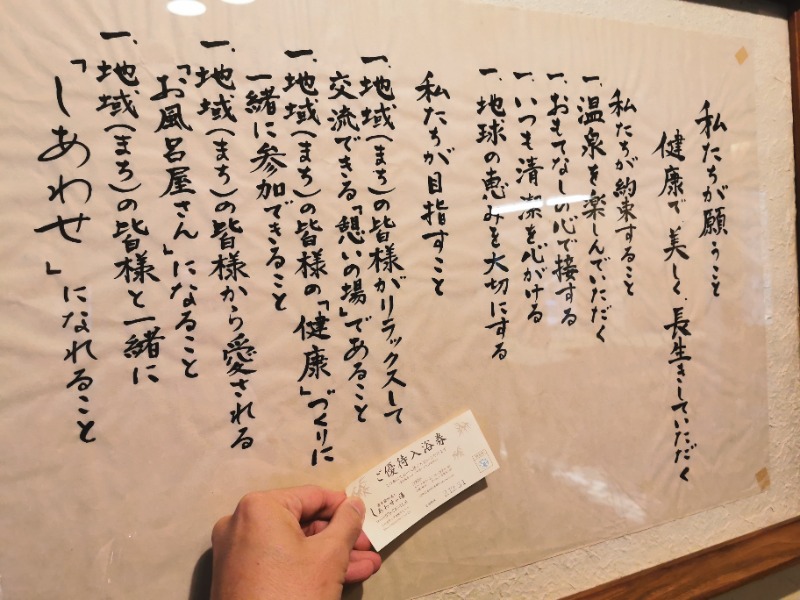 私たちが願うこと
健康で、美しく、長生きしていただく
私たちが約束すること
一、温泉を楽しんでいただく
一、おもてなしの心で接する
一、いつも清潔を心がける
一、地球の恵みを大切にする
私たちが目指すこと
一、地域(まち)の皆様がリラックスして
交流できる「憩いの場」であること
一、地域(まち)の皆様の「健康」づくりに
一緒に参加できること
一、地域(まち)の皆様から愛される
「お風呂屋さん」になること
一、地域(まち)の皆様と一緒に
「しあわせ」になれること
ご優待入浴券
しあわせの湯